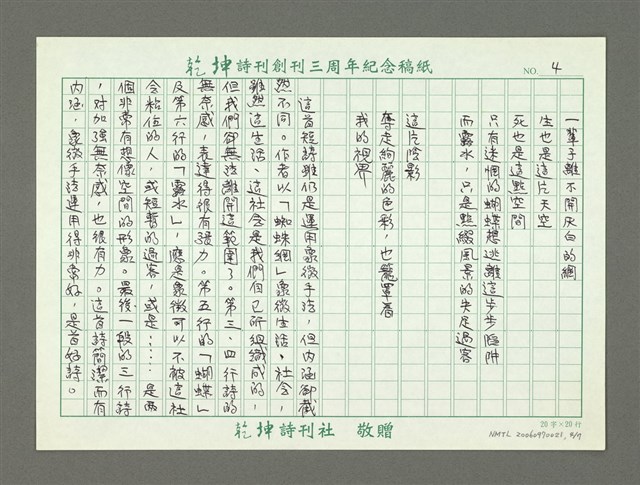 乾坤詩刊創刊三周年紀念稿紙
NO. 4
一輩子離不開灰白的網
生也是這片天空
死也是這點空間
只有迷惘的蝴蝶想逃離這步步陷阱
而露水，只是點綴風景的失足過客
這片陰影
奪走絢麗的色彩，也籠罩着
我的視界
這首短詩雖仍是運用象徵手法，但內涵卻截
然不同。作者以「蜘蛛網」象徵生活、社会，
雖然這生活、這社会是我們自己所組織成的，
但我們卻無法離開這範圍了。第三、四行詩的
無奈感，表達得很有張力。第五行的「蝴蝶」
及第六行的「露水」，應是象徵可以不被這社
会粘住的人，或短暫的過客，或是……是兩
個非常有想像空間的形象。最後一段的三行詩
，对加強無奈感，也很有力。這首詩簡潔而有
內涵，象徵手法運用得非常好，是首好詩。
20字×20行
乾坤詩刊社 敬贈
NMTL 20060970021, 4/7